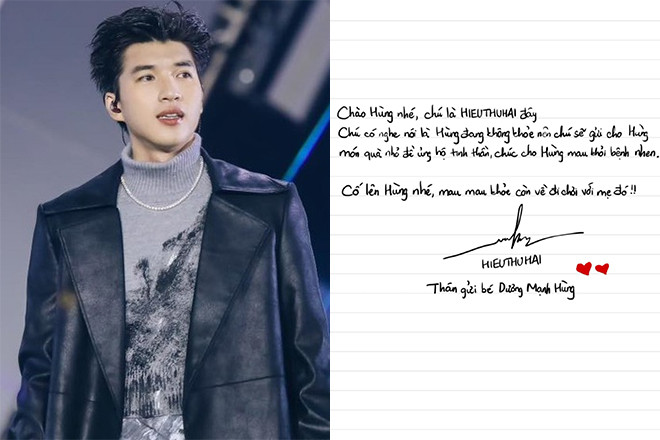 Chào Hùng nhé, chú là HIEUTHUHAI đây
Chú có nghe nói là Hùng đang không khỏe nên chú sẽ gửi cho Hùng
món quà nhỏ để ủng hộ tinh thần, chúc cho Hùng mau khỏi bệnh nhen.
Cố lên Hùng nhé, mau mau khỏe còn về đi chơi với mẹ đó!!
HIEUTHUHAI
Thân gửi bé Dương Mạnh Hùng